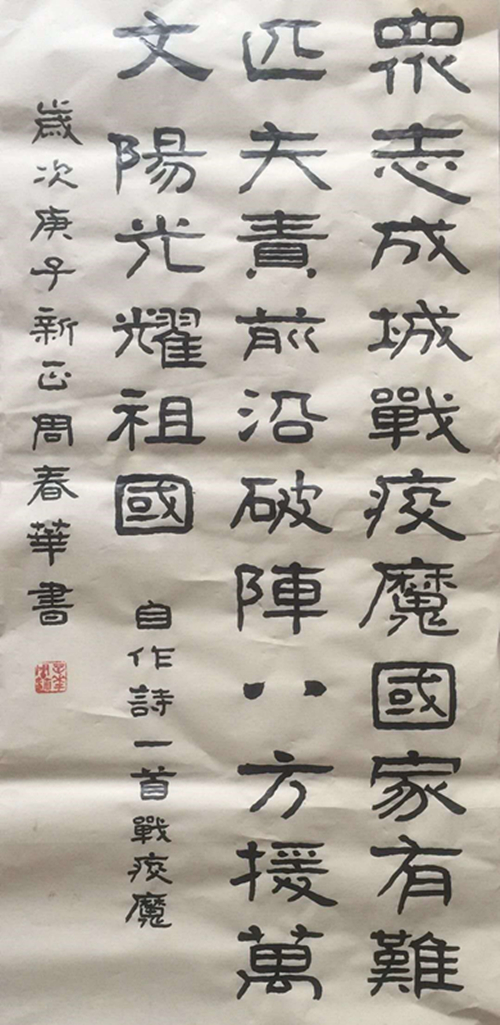 衆志成城戰疫魔國家有難
匹夫責前沿破陣八方援萬
文陽光耀祖國
自作詩一首戰疫魔
歲次庚子新正周春華書